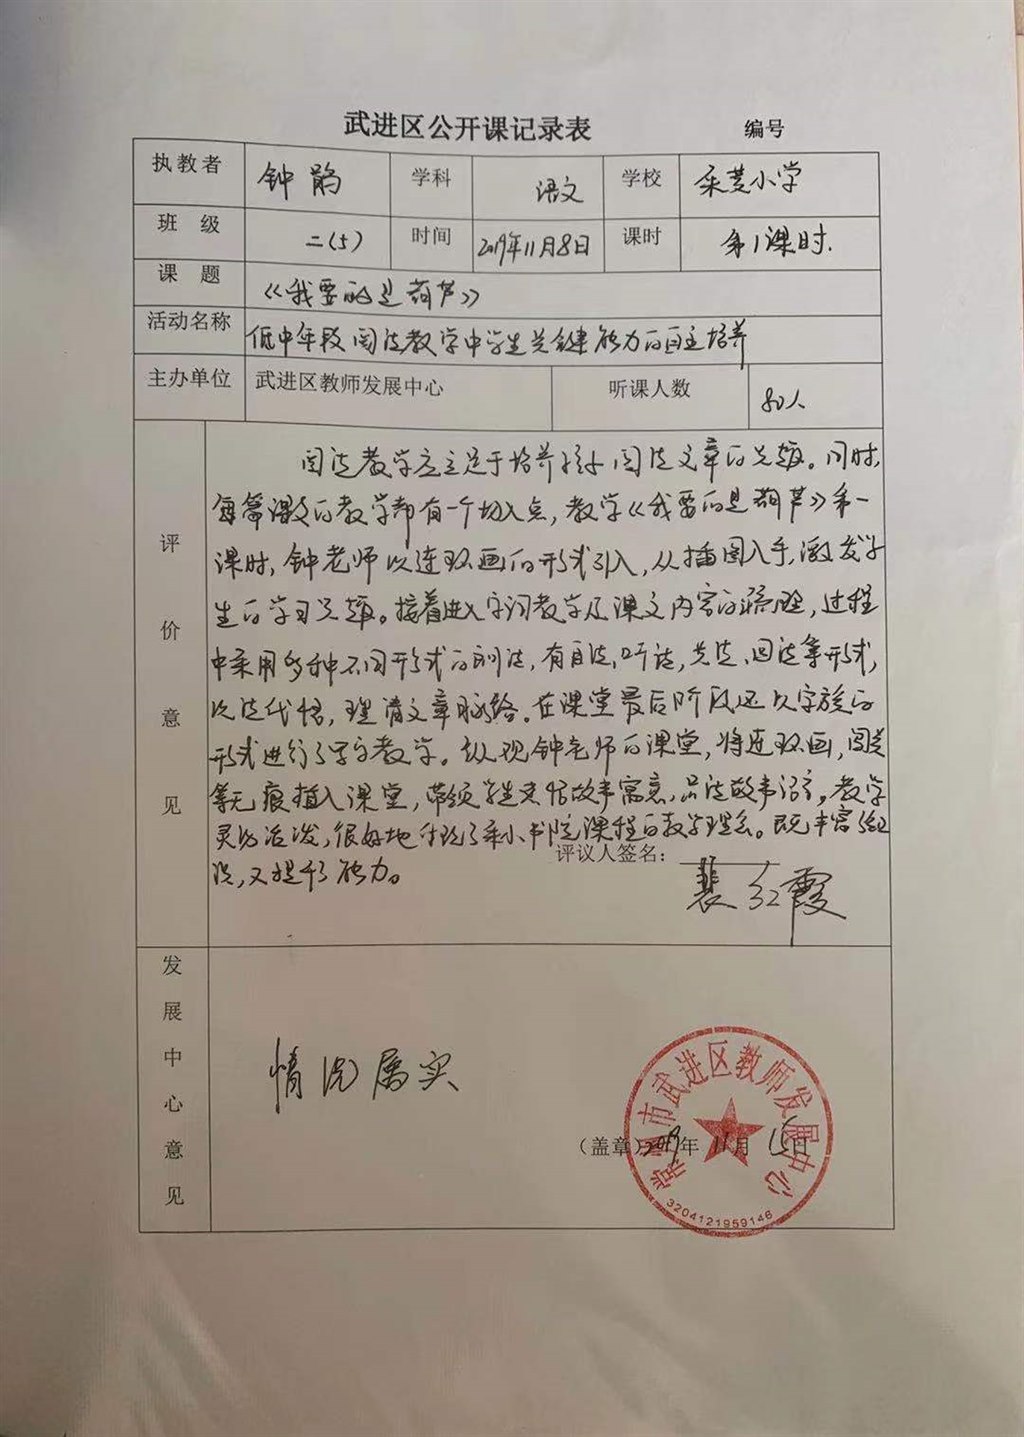 武进区公开课记录表 编号
执教者 钟鹃 学科 语文 学校 采菱小学
班级 二(5) 时间 2019年11月8日 课时 第1课时.
课题 《我要的是葫芦》
活动名称 低中年段阅读教学中学生关键能力的自主培养
主办单位 武进区教师发展中心 听课人数 80人
评价意见
阅读教学应立足于培养孩子阅读文章的兴趣。同时,
每篇课文的教学都有一个切入点,教学《我要的是葫芦》第一
课时,钟老师以连环画的形式引入,从插图入手,激发学
生的学习兴趣。接着进入字词教学及课文内容的梳理,过程
中采用多种不同形式的朗读,有自读、听读,共读、回读等形式,
以读代悟,理清文章脉络。在课堂最后阶段还以字族的
形式进行了写字教学。纵观钟老师的课堂,将连环画,闯关
等无痕植入课堂,带领学生来悟故事寓意,品读故事语言,教学
灵动活泼,很好地体现了采小书院课程的教学理念。既丰富
又提升了能力。
评议人签名:
裴红霞
发展中心意见
情况属实
(盖章)2019年11月15日
常州市武进区教师发展中心
3204121959146